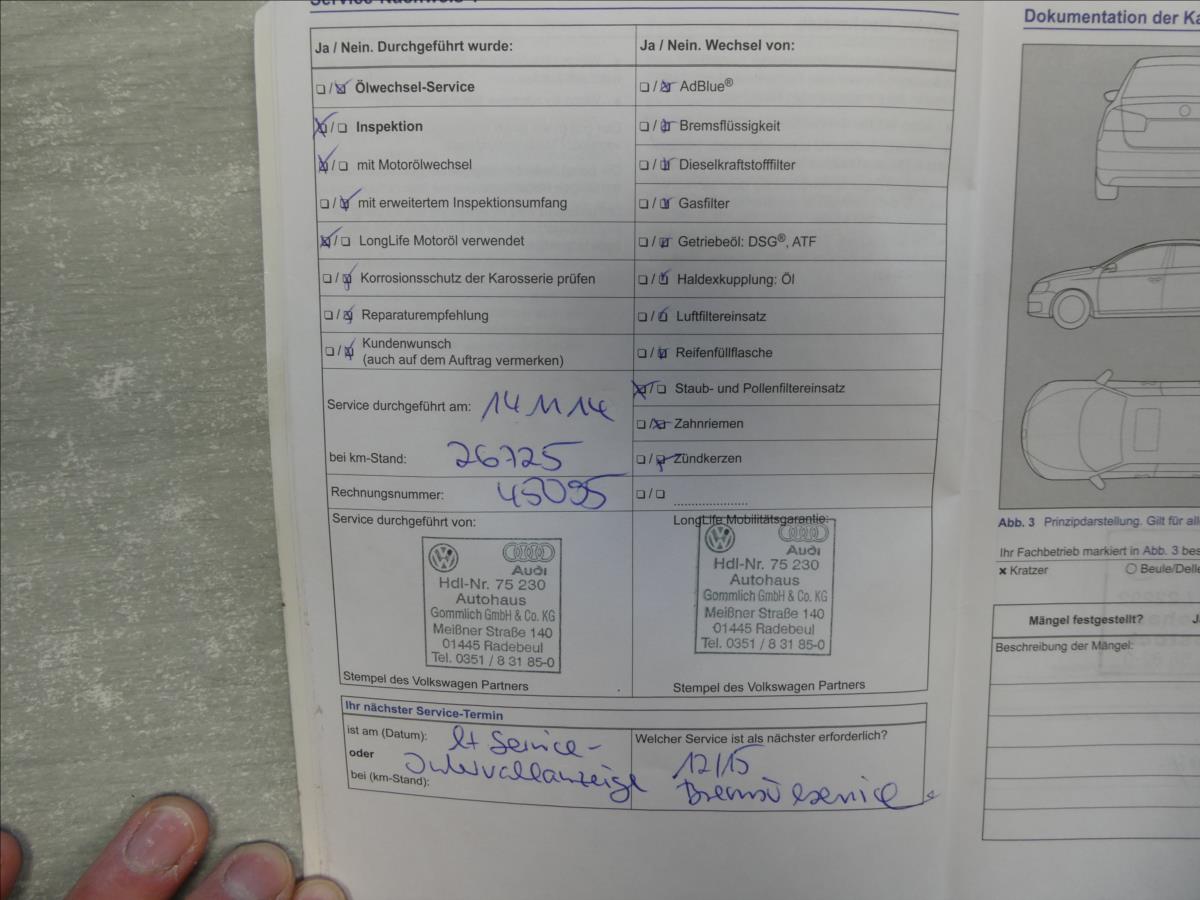 Ja / Nein. Durchgeführt wurde:
Ja / Nein. Wechsel von:
❏ / ❏ Ölwechsel-Service
❏ / ❏ AdBlue®
❏ / ❏ Inspektion
❏ / ❏ Bremsflüssigkeit
❏ / ❏ mit Motorölwechsel
❏ / ❏ Dieselkraftstofffilter
❏ / ❏ mit erweitertem Inspektionsumfang
❏ / ❏ Gasfilter
❏ / ❏ LongLife Motoröl verwendet
❏ / ❏ Getriebeöl: DSG®, ATF
❏ / ❏ Korrosionsschutz der Karosserie prüfen
❏ / ❏ Haldexkupplung: Öl
❏ / ❏ Reparaturempfehlung
❏ / ❏ Luftfiltereinsatz
❏ / ❏ Kundenwunsch
(auch auf dem Auftrag vermerken)
❏ / ❏ Reifenfüllflasche
❏ / ❏ Staub- und Pollenfiltereinsatz
Service durchgeführt am: 14 11 14
❏ / ❏ Zahnriemen
bei km-Stand: 26725
❏ / ❏ Zündkerzen
Rechnungsnummer: 45095
❏ / ❏ ....................
Service durchgeführt von:
Audi
Hdl-Nr. 75 230
Autohaus
Gommlich GmbH & Co. KG
Meißner Straße 140
01445 Radebeul
Tel. 0351 / 8 31 85-0
Stempel des Volkswagen Partners
LongLife Mobilitätsgarantie:
Audi
Hdl-Nr. 75 230
Autohaus
Gommlich GmbH & Co. KG
Meißner Straße 140
01445 Radebeul
Tel. 0351 / 8 31 85-0
Stempel des Volkswagen Partners
Ihr nächster Service-Termin
ist am (Datum): lt Service-
oder Intervallanzeige
bei (km-Stand):
Welcher Service ist als nächster erforderlich?
12/15
Bremsölservice
Dokumentation der
Abb. 3 Prinzipdarstellung. Gilt für
Ihr Fachbetrieb markiert in Abb. 3
× Kratzer
○ Beule/Delle
Mängel festgestellt?
Beschreibung der Mängel: